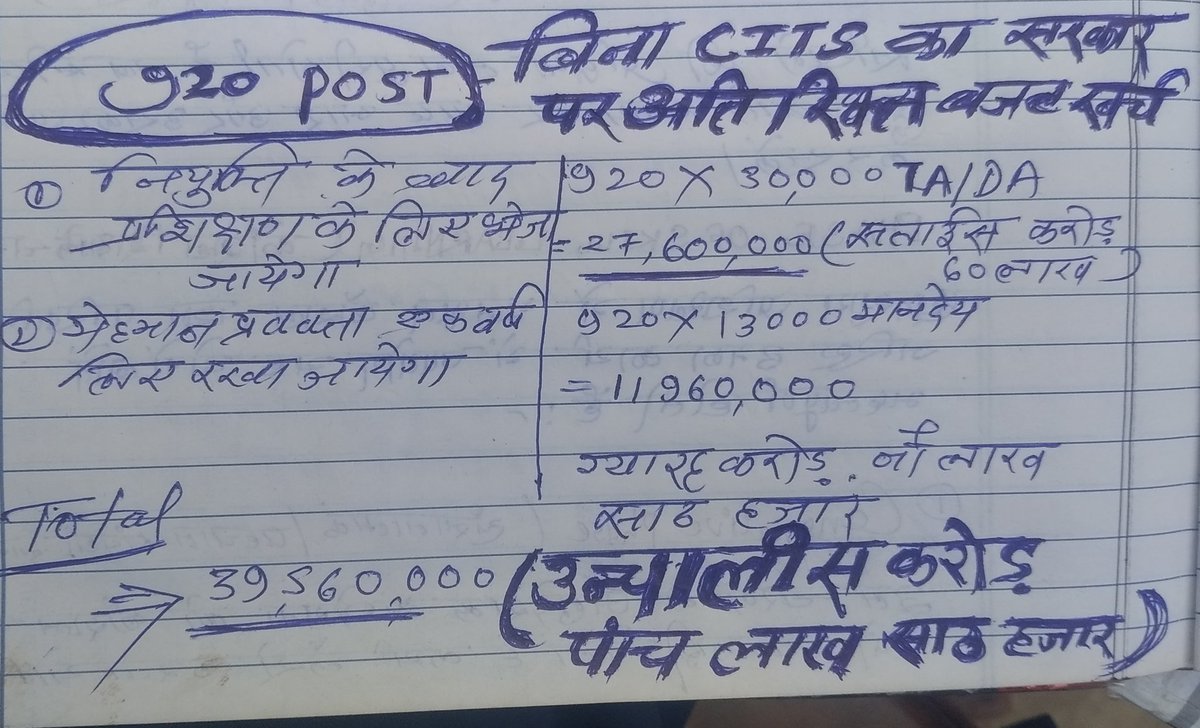 920 POST - बिना CITS का सरकार
पर अतिरिक्त बजट खर्च
① नियुक्ति के बाद
प्रशिक्षण के लिए भेजा
जायेगा
920 X 30,000 TA/DA
= 27,600,000 (सताईस करोड़
60 लाख)
② मेहमान प्रवक्ता एक वर्ष
लिए रखा जायेगा
920 X 13000 मानदेय
= 11960,000
ग्यारह करोड़ नौ लाख
साठ हजार
Total
⇒ 39,560,000 (उन्चालीस करोड़
पांच लाख साठ हजार)